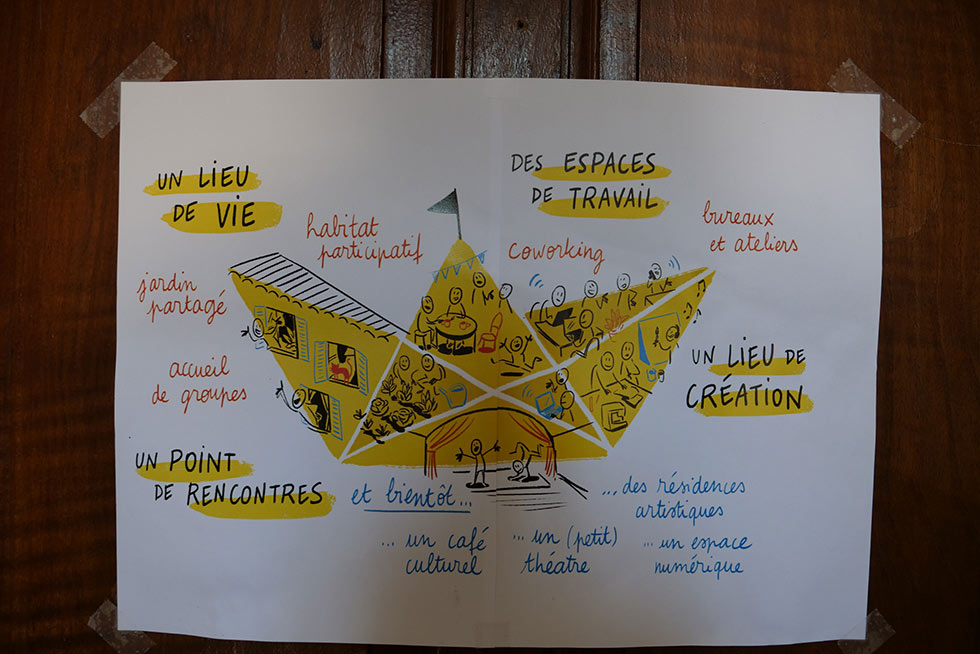 UN LIEU
DE VIE
habitat
participatif
DES ESPACES
DE TRAVAIL
coworking
bureaux
et ateliers
jardin
partagé
accueil
de groupes
UN LIEU DE
CRÉATION
UN POINT
DE RENCONTRES
et bientôt...
... un café
culturel
... un (petit)
théatre
... des résidences
artistiques
... un espace
numérique